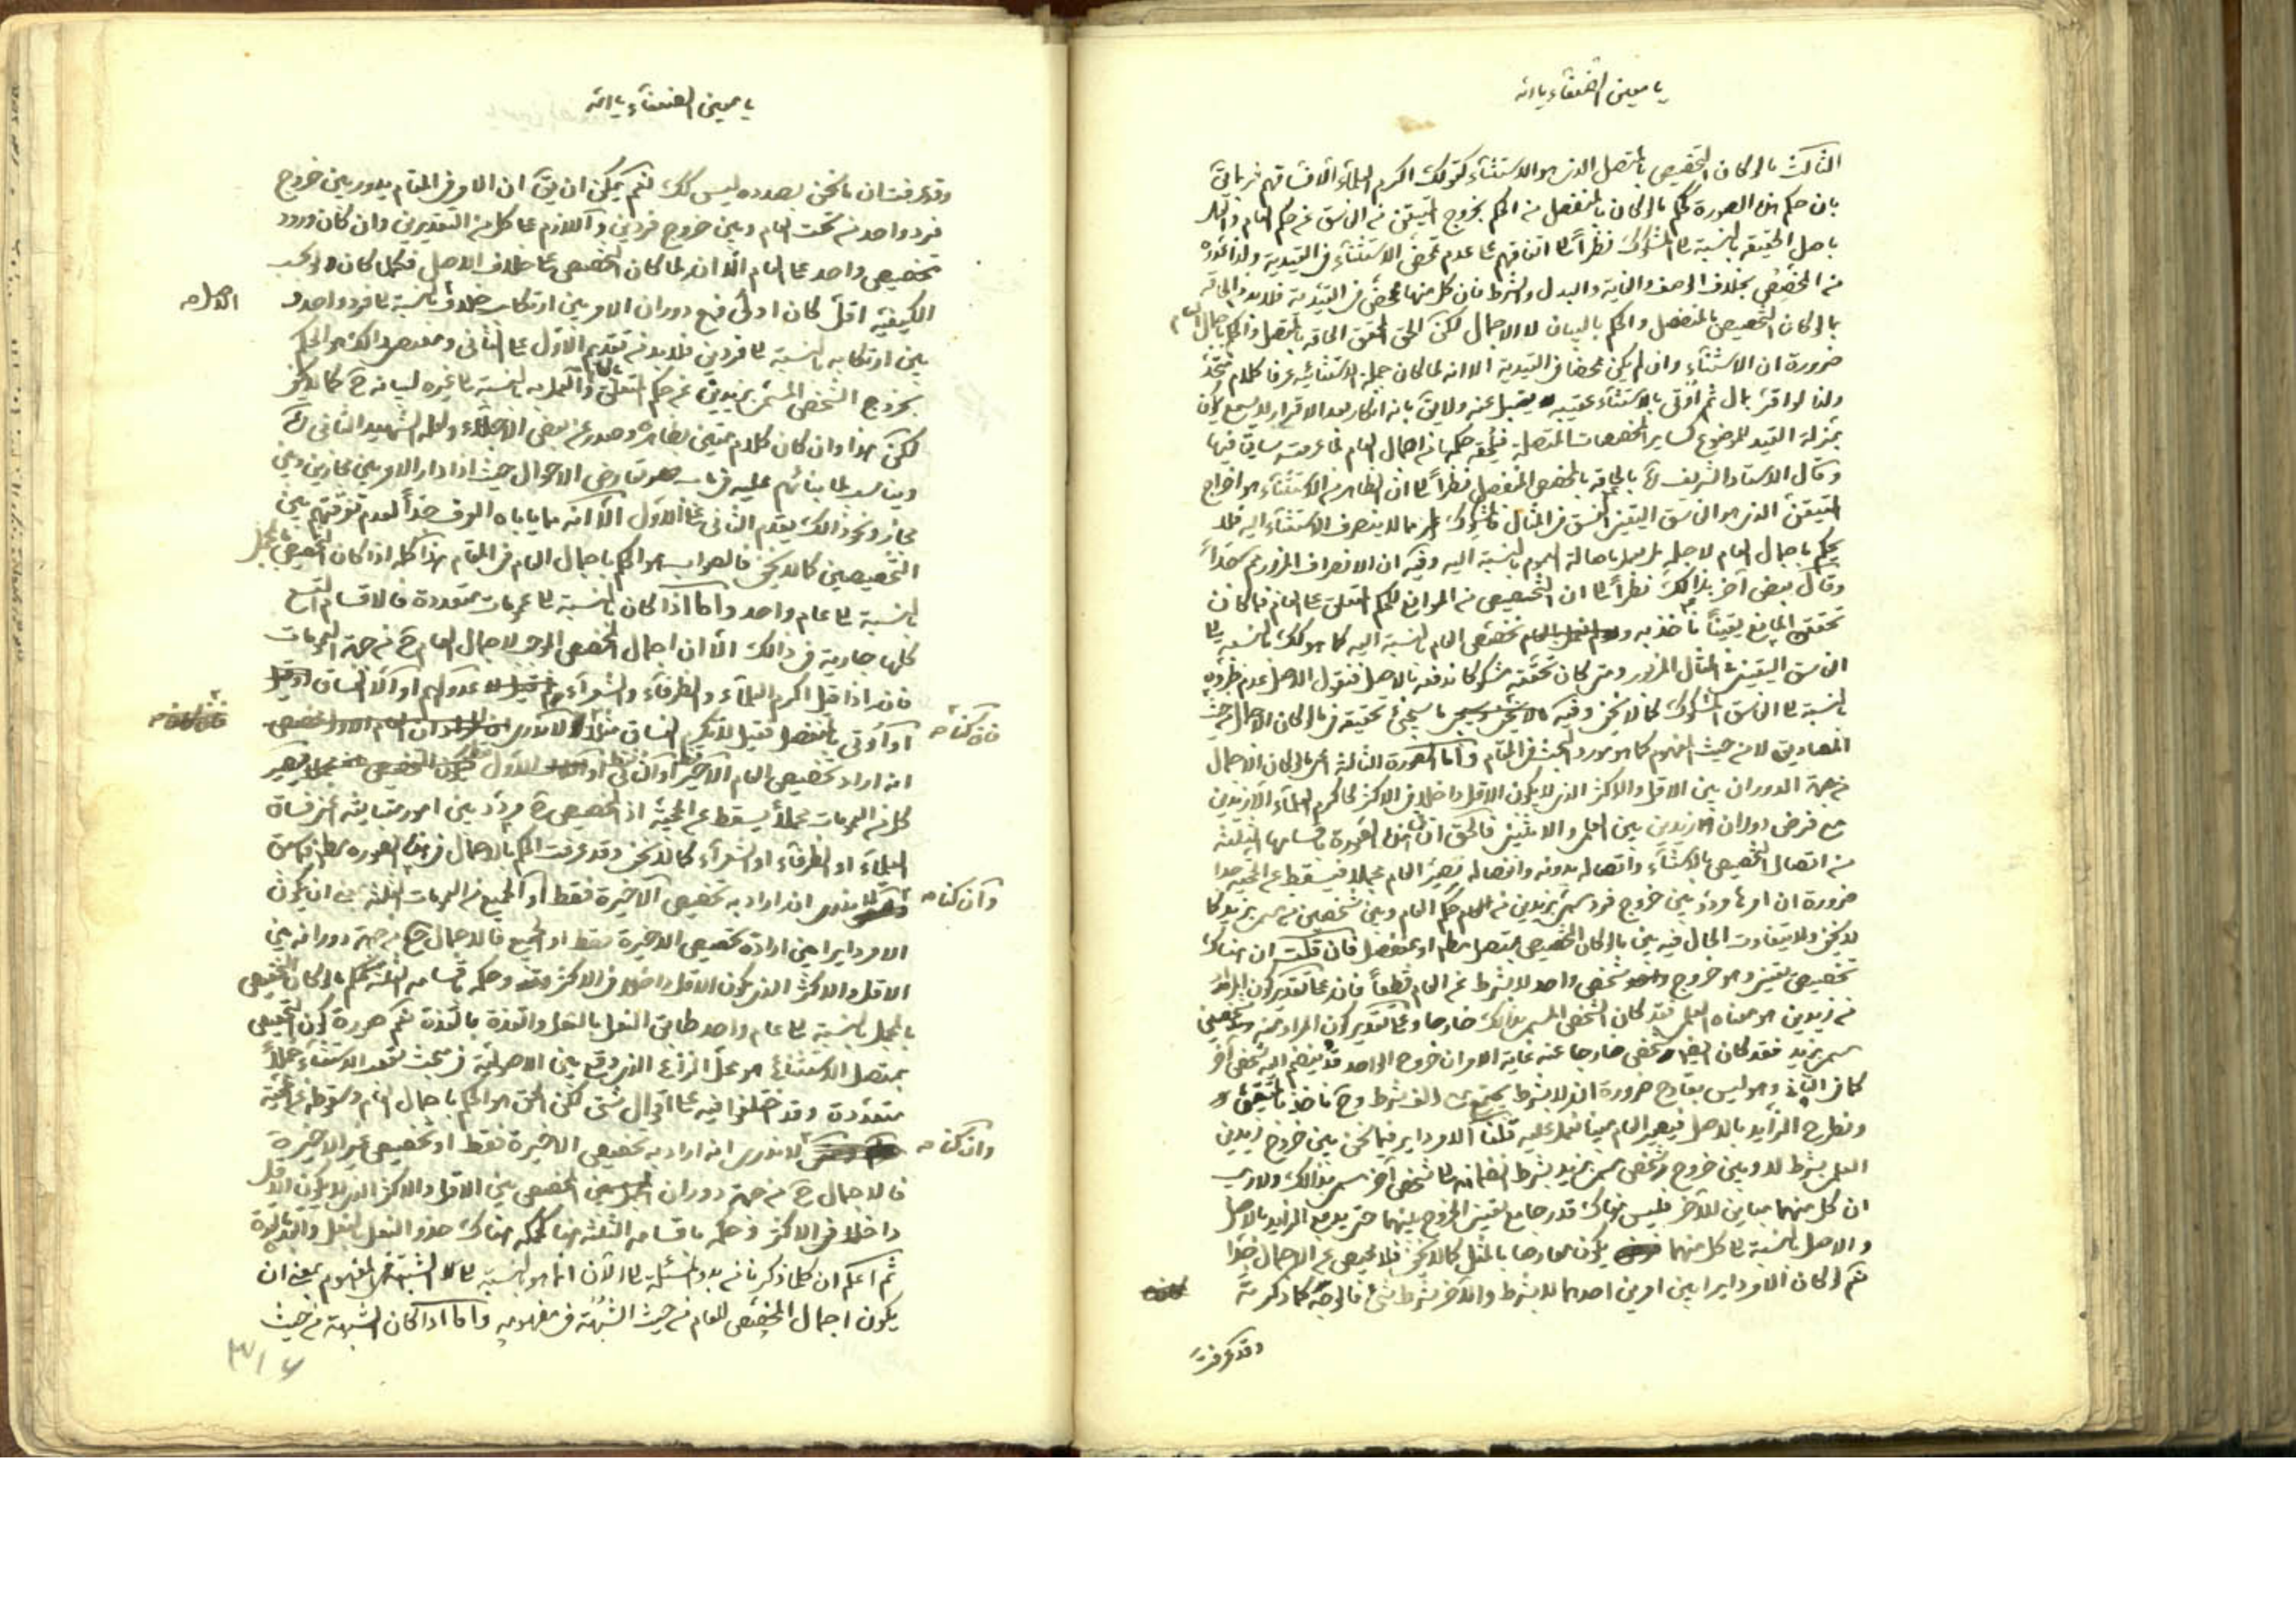 يا معين الضعفاء يا الله
الثالث ما لو كان التخصيص بالمتصل الذى هو الاستثناء كقولك اكرم العلماء الا فساقهم فربما يق
بان حكم هذه الصورة حكم ما لو كان بالمنفصل من الحكم بخروج المتيقن من الفاسق عن حكم العام
باصل الحقيقة بالنسبة الى المشكوك نظراً الى اتفاقهم على عدم تمحض الاستثناء فى القيدية ولذا
من المخصص بخلاف الوصف والغاية والبدل والشرط فان كل منها تمحض فى القيدية فلا بد من الحاقه
بما لو كان التخصيص بالمنفصل والحكم بالبيان لا الاجمال لكن الحق المحقق الحاقه بالمتصل والحكم باجمال العام
ضرورة ان الاستثناء وان لم يكن محضا فى القيدية الا انه لما كان جملة الاستثنائية عرفا كلام متحد
ولذا لو اقر بمال ثم اوتى بالاستثناء عقيبه يقبل عنه ولا يق بانه انكار بعد الاقرار لا يسمع يكون
بمنزلة القيد للموضوع كساير المخصصات المتصلة فيلحقه حكمها من اجمال العام لما عرفت سابق فيها
وقال الاستاد الشريف بالحاقه بالمخصص المنفصل نظراً الى ان الظاهر من الاستثناء هو اخراج
المتيقن الذى هو الفاسق اليقينى الفسق فى المثال فالمشكوك مما لا ينصرف الاستثناء اليه فلا
يحكم باجمال العام لاجله بل يعمل باصالة العموم بالنسبة اليه وفيه ان الانصراف المزبور جداً
وقال بعض آخر بذالك نظراً الى ان التخصيص من الموانع للحكم المتعلق على العام فما كان
تحقق المانع يقيناً نأخذ به تخصيص العام بالنسبة اليه كما هو كك بالنسبة الى
الفاسق اليقينى فى المثال المزبور ومتى كان تحققه مشكوكا ندفعه بالاصل فنقول الاصل عدم
بالنسبة الى الفاسق المشكوك كما لا يخفى وفيه ما سيجئ تحقيقه فيما لو كان الاجمال من حيث
المصاديق لا من حيث المفهوم كما هو مورد البحث فى المقام واما الصورة الثالثة اى ما لو كان الاجمال
من جهة الدوران بين الاقل والاكثر الذى لا يكون الاقل داخلا فى الاكثر كاكرم العلماء الا زيدين
مع فرض دوران زيدين بين العلم والاثنين فالحق ان هذه الصورة باقسامها الثلثة
من اتصال التخصيص بالاستثناء واتصاله بدونه وانفصاله تصير العام مجملا فيسقط عن الحجية جدا
ضرورة ان امرها مردد بين خروج فرد مسمى بزيدين من حكم العام وبين شخصين مسمى بزيد كما
لا يخفى ولا يتفاوت الحال فيه بين ما لو كان التخصيص بمتصل مط او بمنفصل فان قلت ان هناك
تخصيص يقينى وهو خروج شخص واحد لا بشرط عن العام قطعاً فانه على تقدير كون المراد
من زيدين هو معناه العلمى فقد كان الشخص المسمى بذالك خارجا وعلى تقدير كون المراد منه شخصين
مسمى بزيد فقد كان شخص خارجا عنه غاية الامر ان خروج الواحد قد ينضم اليه شخص آخر
كما فى الثانى وهو ليس بقادح ضرورة ان لا بشرط يجتمع مع الف شرط وح نأخذ بالمتيقن
ونطرح الزايد بالاصل فيصير العام مبينا فنعمل عليه قلنا الامر داير فيما نحن بين خروج زيدين
العلمى بشرط لا وبين خروج شخص مسمى بزيد بشرط انضمامه الى شخص آخر مسمى بذالك ولا ريب
ان كل منهما مباين للآخر فليس هناك قدر جامع يقينى الخروج بينهما حتى يدفع الزايد بالاصل
والاصل بالنسبة الى كل منهما يكون معارضا بالمثل كما لا يخفى فلا محيص عن الاجمال جدا
نعم لو كان الامر دايرا بين امرين احدهما لا بشرط والآخر بشرط شئ فالوجه كما ذكرت
وقد عرفت
يا معين الضعفاء يا الله
وقد عرفت ان ما نحن بصدده ليس كك نعم يمكن ان يق ان الامر فى المقام يدور بين خروج
فرد واحد من تحت العام وبين خروج فردين واللازم على كل من التقديرين وان كان ورود
تخصيص واحد على العام الا انه لما كان التخصيص على خلاف الاصل فكلما كان بحسب
الكيفية اقل كان اولى فمع دوران الامر بين ارتكاب خلاف بالنسبة الى فرد واحد و
الاصل صح
بين ارتكابه بالنسبة الى فردين فلا بد من تقديم الاول على الثانى ومقتضى ذالك هو الحكم
بخروج الشخص المسمى بزيدين عن حكم المتعلق بالعام والعمل به بالنسبة الى غيره لبيانه ح كما لا يخفى
لكن هذا وان كان كلام متين بظاهره وصدر عن بعض الاجلاء ولعله الشهيد الثانى ره
ويناسب لما بنائهم عليه فى باب تعارض الاحوال حيث اذا دار الامر بين مجازين وبين
مجاز ونحو ذالك يقدم الثانى على الاول الا انه مما ياباه العرف جداً لعدم توقفهم بين
التخصيصين كما لا يخفى فالصواب هو الحكم باجمال العام فى المقام هذا كله اذا كان التخصيص بالمجمل
بالنسبة الى عام واحد واما اذا كان بالنسبة الى عمومات متعددة فالاقسام التسع
كلها جارية فى ذالك الا ان اجمال المخصص الموجب لاجمال العام ح من جهة العمومات
فان اذا قيل اكرم العلماء والظرفاء والشعراء عدولهم او الا الفساق
او اوتى بالمنفصل فقيل لا تكرم الفساق مثلا لا ندرى
فان كنا صح
انه اراد تخصيص العام الاخير او الثانى او الاول فيصير
كل من العمومات مجملاً يسقط عن الحجية اذ التخصيص ح مردد بين امور متباينة اعنى فساق
العلماء او الظرفاء او الشعراء كما لا يخفى وقد عرفت الحكم بالاجمال فى هذه الصورة مط فيما سبق
لا ندرى ان اراد به تخصيص الاخيرة فقط او الجميع من العمومات الثلثة بمعنى ان يكون
وان كنا صح
الامر دايرا بين ارادة تخصيص الاخيرة فقط او الجميع فالاجمال ح من جهة دورانه بين
الاقل والاكثر الذى يكون الاقل داخلا فى الاكثر وحكمه باقسامه الثلثة كحكم ما لو كان التخصيص
بالمجمل بالنسبة الى عام واحد طابق النعل بالنعل والقذة بالقذة نعم صورة كون التخصيص
بمتصل الاستثنائى هو محل النزاع الذى وقع بين الاصوليين فى مبحث تعقب الاستثناء جملاً
متعددة وقد اختلفوا فيه على اقوال شتى لكن الحق هو الحكم باجمال العام وسقوطه عن الحجية
لا ندرى انه اراد به تخصيص الاخيرة فقط او تخصيص غير الاخيرة
وان كنا صح
فالاجمال ح من جهة دوران التخصيص بين الاقل والاكثر الذى لا يكون الاقل
داخلا فى الاكثر فحكمه باقسامه الثلثة هنا كحكمه هناك حذو النعل بالنعل والقذة بالقذة
ثم اعلم ان كلما ذكرنا من بدو المسئلة الى الآن انما هو بالنسبة الى الشبهة فى المفهوم بمعنى ان
يكون اجمال المخصص للعام من حيث الشبهة فى مفهومه واما اذا كان الشبهة من حيث